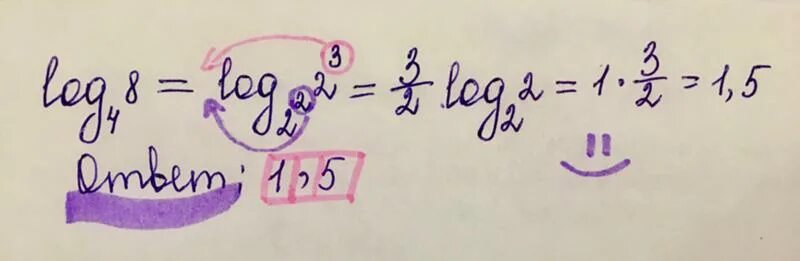 log₄8 = log_{2²}2³ = 3/2 log₂2 = 1 · 3/2 = 1,5
Ответ: 1,5